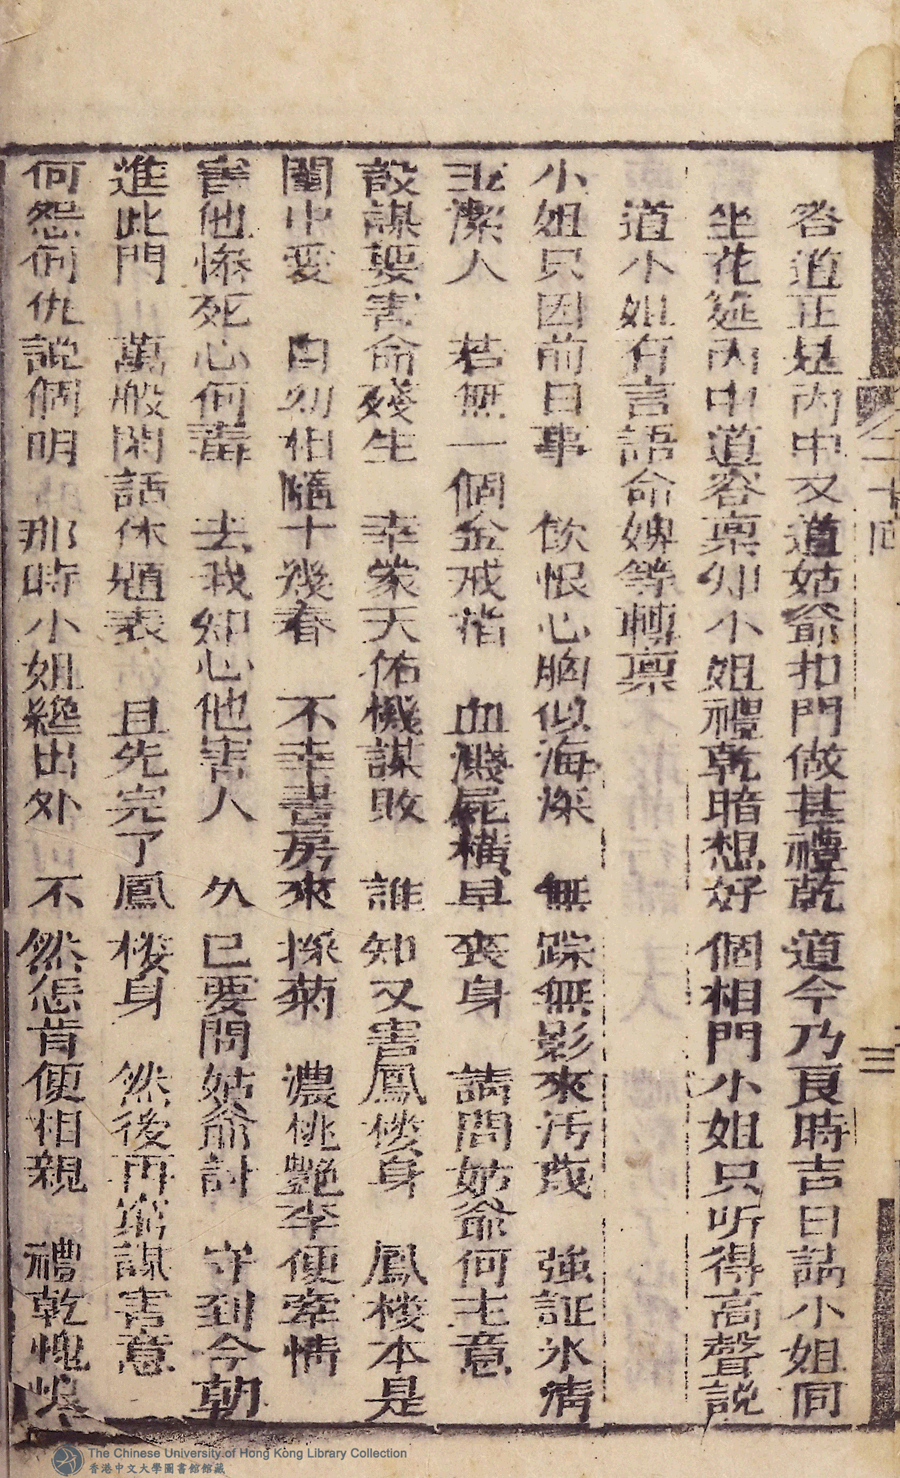 二十回
三
答道正是內中又道姑爺扣門做甚禮乾道今乃良時吉日請小姐同
坐花筵內中道容稟知小姐禮乾暗想好個相門小姐只听得高聲說
道小姐有言語命婢等轉稟
小姐只因前日事 飲恨心胸似海深 無踪無影來污蔑 強証氷清
玉潔人 若無一個金戒指 血濺屍橫早喪身 請問姑爺何主意
設謀要害命殘生 幸蒙天佑機謀敗 誰知又害鳳楼身 鳳楼本是
閨中愛 自幼相隨十幾春 不幸書房來採菊 濃桃艷李便牽情
害他慘死心何毒 去我知心他害人 久已要問姑爺討 守到今朝
進此門 萬般閑話休題表 且先完了鳳楼身 然後再謀害意
何怨何仇說個明 那時小姐纔出外 不然怎肯便相親 禮乾愧
The Chinese University of Hong Kong Library Collection
香港中文大學圖書館館藏